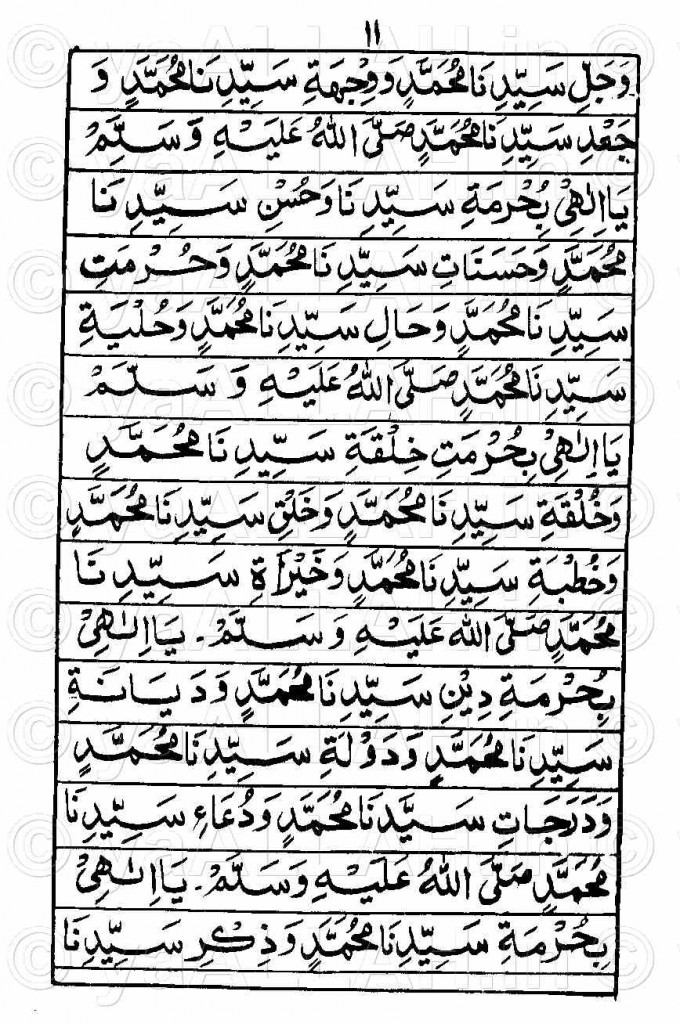 ١١
وَجَلِ سَيِّدِنَا مُحَمَّدٍ وَوِجْهَةِ سَيِّدِنَا مُحَمَّدٍ وَ
جَعْدِ سَيِّدِنَا مُحَمَّدٍ صَلَّى اللهُ عَلَيْهِ وَسَلَّمْ
يَا اِلٰهِىْ بِحُرْمَةِ سَيِّدِنَا وَحُسْنِ سَيِّدِنَا
مُحَمَّدٍ وَحَسَنَاتِ سَيِّدِنَا مُحَمَّدٍ وَحُرْمَتِ
سَيِّدِنَا مُحَمَّدٍ وَحَالِ سَيِّدِنَا مُحَمَّدٍ وَحُلْيَةِ
سَيِّدِنَا مُحَمَّدٍ صَلَّى اللهُ عَلَيْهِ وَسَلَّمْ
يَا اِلٰهِىْ بِحُرْمَتِ خِلْقَةِ سَيِّدِنَا مُحَمَّدٍ
وَخُلْقَةِ سَيِّدِنَا مُحَمَّدٍ وَخَلْقِ سَيِّدِنَا مُحَمَّدٍ
وَخُطْبَةِ سَيِّدِنَا مُحَمَّدٍ وَخَيْرَاةِ سَيِّدِنَا
مُحَمَّدٍ صَلَّى اللهُ عَلَيْهِ وَسَلَّمْ۔ يَا اِلٰهِىْ
بِحُرْمَةِ دِيْنِ سَيِّدِنَا مُحَمَّدٍ وَدَيَانَةِ
سَيِّدِنَا مُحَمَّدٍ وَدَوْلَةِ سَيِّدِنَا مُحَمَّدٍ
وَدَرَجَاتِ سَيَّدِنَا مُحَمَّدٍ وَدُعَاءِ سَيِّدِنَا
مُحَمَّدٍ صَلَّى اللهُ عَلَيْهِ وَسَلَّمْ۔ يَا اِلٰهِىْ
بِحُرْمَةِ سَيِّدِنَا مُحَمَّدٍ وَذِكْرِ سَيِّدِنَا